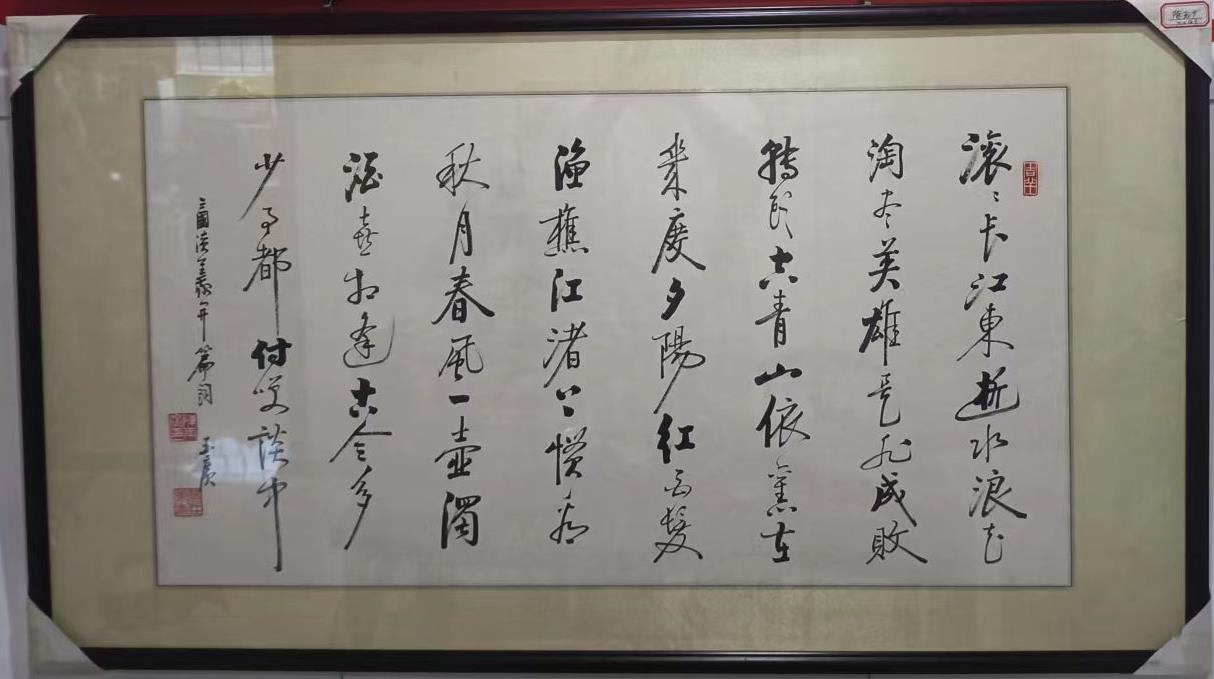 滚〻长江東逝水浪花
淘尽英雄是非成敗
轉頭空青山依舊在
幾度夕陽紅白髮
渔樵江渚上慣看
秋月春風一壺濁
酒喜相逢古今多
少事都付笑談中
三國演義開篇詞